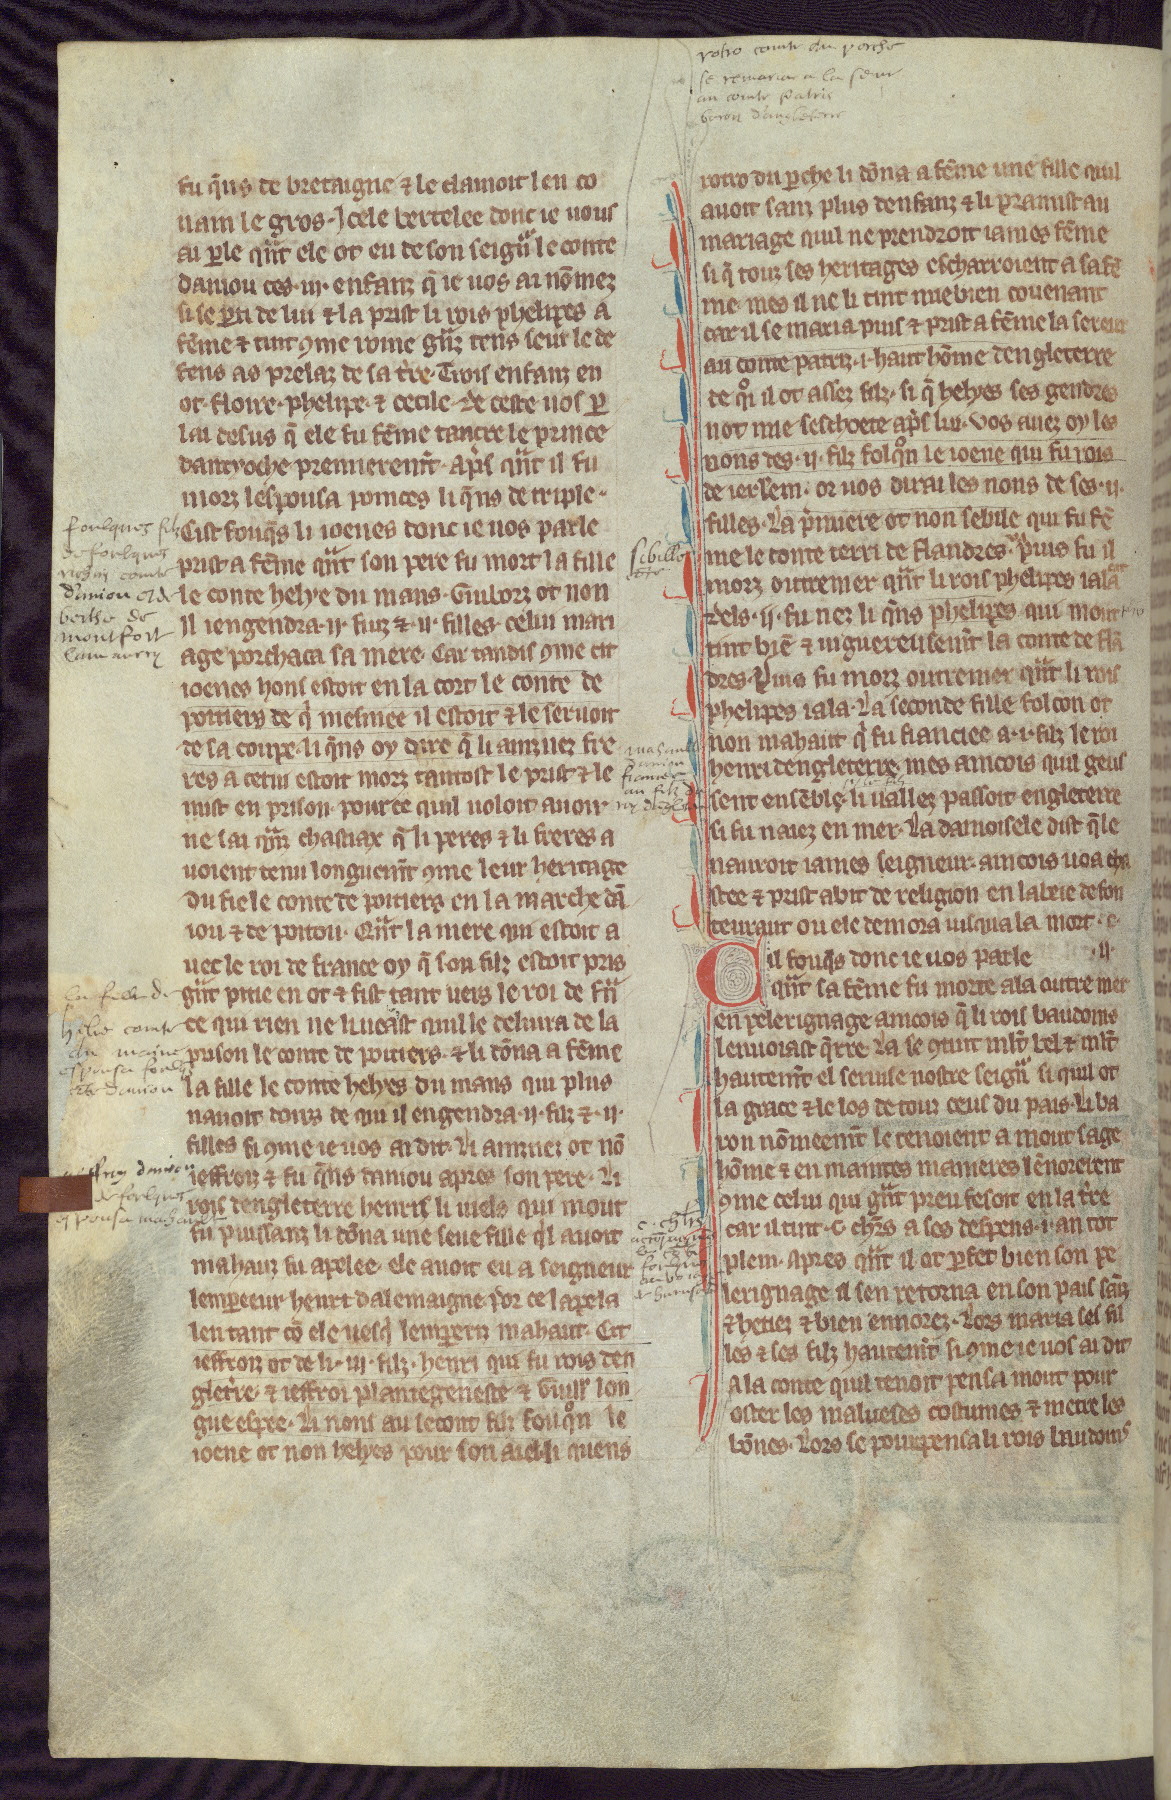 rotro comte du perche
se remaria a la seur
au comte patris
baron d'angleterre
fu q̃ns de bretaigne ⁊ le clamoit len co
nain le gros · Icele bertelee donc ie uous
ai ꝑle q̃nt ele ot eu de son seignr̃ le conte
daniou ces · iii · enfanz q̃ ie uos ai nõmez
si se ꝑti de lui ⁊ la prist li rois phelipes a
fẽme ⁊ tint ꝯme roine gñz tens seur le de
fens as prelaz de sa tr̃e · Trois enfanz en
ot · floire · phelipe · ⁊ cecile · De ceste uos ꝑ
lai desus q̃ ele fu fẽme tancre le prince
dantyoche premieremt̃ · apr̃s q̃nt il fu
morz lespousa poinces li q̃ns de triple ·
Cist fouq̃s li ioenes donc ie uos parle
prist a fẽme q̃nt son pere fu mort la fille
le conte helye du mans · Guiborz ot non
il iengendra · ii · fiuz ⁊ · ii · filles · celui mari
age porchaca sa mere · Car tandis ꝯme cit
ioenes hons estoit en la cort le conte de
poitiers de q̃ mesniee il estoit ⁊ le seruoit
de sa coupe · li q̃ns oy dire q̃ li ainznez fre
res a cetui estoit morz tantost le prist ⁊ le
mist en prison · pour ce quil uoloit auoir ·
ne sai q̃nz chastiax q̃ li peres ⁊ li freres a
uoient tenu longuemt̃ ꝯme leur heritage
du fie le conte de poitiers en la marche dã
iou ⁊ de poitou · Q̃nt la mere qui estoit a
uec le roi de france oy q̃ son filz estoit pris
gñt pitie en ot ⁊ fist tant uers le roi de frã
ce qui rien ne li ueast quil le deliura de la
prison le conte de poitiers · ⁊ li dõna a fẽme
la fille le conte helyes du mans qui plus
nauoit doirs de qui il engendra · ii · fiz ⁊ · ii ·
filles si ꝯme ie uos ai dit · Li ainznez ot nõ
ieffroiz ⁊ fu q̃ns daniou apres son pere · Li
rois dengleterre henris li uielz qui mout
fu puissanz li dõna une seue fille q̃l auoit
mahauz fu apelee · ele auoit eu a seigneur
lempereeur henri dalemaigne · por ce lapela
len tant cõ ele uesq̃ lemperriz mahaut · Cit
ieffroiz ot de li · iii · filz · henri qui fu rois den
gletr̃e · ⁊ ieffroi plantegeneste ⁊ Guill̃ lon
gue espee · Li nons au secont filz fouqͦn le
ioene ot non helyes pour son aiel · li quens
rotro du ꝑche li dõna a fẽme une fille quil
auoit sanz plus denfanz ⁊ li ꝓmist au
mariage quil ne prendroit iames fẽme
si q̃ touz ses heritages escharroient a sa fẽ
me · mes il ne li tint mie bien couenant
car il se maria puis ⁊ prist a fẽme la sereur
au conte patriz · i · haut hõme dengleterre
de qͦi il ot assez filz · si q̃ helyes ses gendres
not mie seschoete apr̃s lui · Vos auez oy les
nons des · ii · filz folqͦn le ioene qui fu rois
de ierłem · or uos dirai les nons de ses · ii ·
filles · La p̃miere ot non sebile qui fu fẽ
me le conte terri de flandres · Puis fu il
morz outremer q̃nt li rois phelipes iala
dels · ii · fu nez li q̃ns phelipes qui mout
tint biẽ ⁊ uiguereusemt̃ la conte de flã
dres · Puis fu morz outremer q̃nt li rois
phelipes iala · La seconde fille folcon ot
non mahaut q̃ fu fianciee a · i · filz le roi
henri dengleterre · mes aincois quil geus
sent ensẽble · li uallez passoit engleterre
si fu naiez en mer · La damoisele dist q̃le
nauroit iames seigneur · aincois uoa cha
stee ⁊ prist abit de religion en labeie de fon
teuraut ou ele demora iusqua la mort ·
Cil fouq̃s donc ie uos parle · ii
q̃nt sa fẽme fu morte ala outre mer
en pelerignage aincois q̃ li rois baudoins
lenuoiast q̃rre · La se ꝯtint mlt̃ bel ⁊ mlt̃
hautemt̃ el seruise nostre seignr̃ si quil ot
la grace ⁊ le los de touz ceus du pais · Li ba
ron nõmeemt̃ le tenoient a mout sage
hõme ⁊ en maintes manieres lẽnorerent
ꝯme celui qui gñt preu fesoit en la tr̃e
car il tint · c · chr̃s a ses despens · i · an tot
plein · apres q̃nt il ot ꝑfet bien son pe
lerignage il sen retorna en son pais sãz
⁊ hetiez ⁊ bien ennorez · Lors maria ses fil
les ⁊ ses filz hautemt̃ si ꝯme ie uos ai dit
A la conte quil tenoit pensa mout pour
oster les malueses costumes ⁊ metre les
bõnes · Lors se pourpensa li rois baudoins
foulques filz
de foulques
rechin comte
d'anjou et de
berthe de
montfort
lamaury
la fille de
helie comte
du maine
espousa foulq
cte d'aniou
geffroy d'aniou
de foulques
espousa mahault
sebille
mahault
d'aniou
fiancee
au filz du
roy d'angl